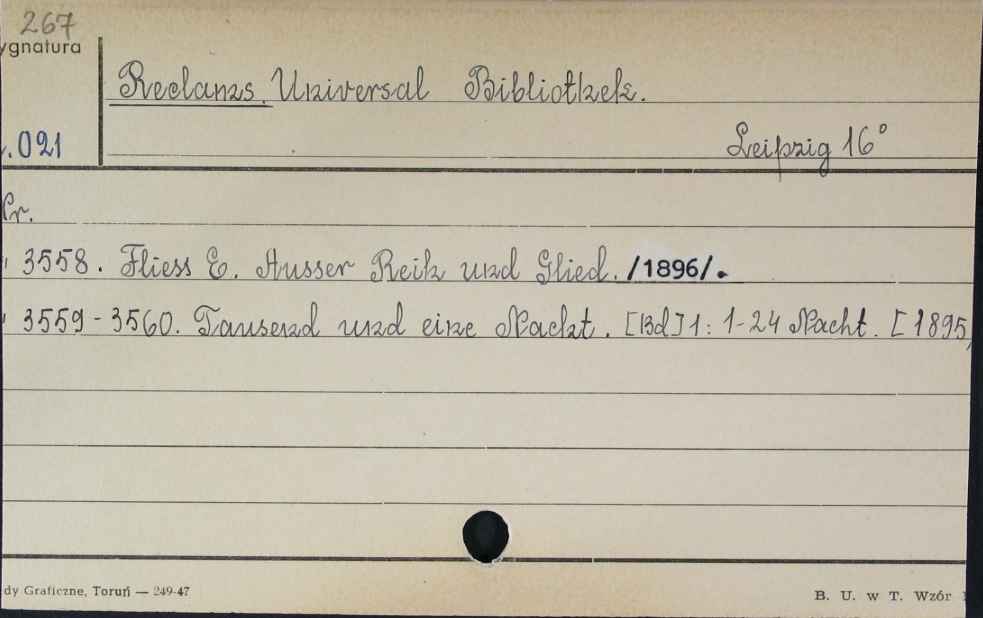 267
ygnatura
Reclams Universal Bibliothek.
.021
Leipzig 16°
Nr.
" 3558. Fliess E. Ausser Reih und Glied. /1896/.
" 3559-3560. Tausend und eine Nacht. [Bd] 1: 1-24 Nacht. [1895
dy Graficzne, Toruń — 249-47
B. U. w T. Wzór